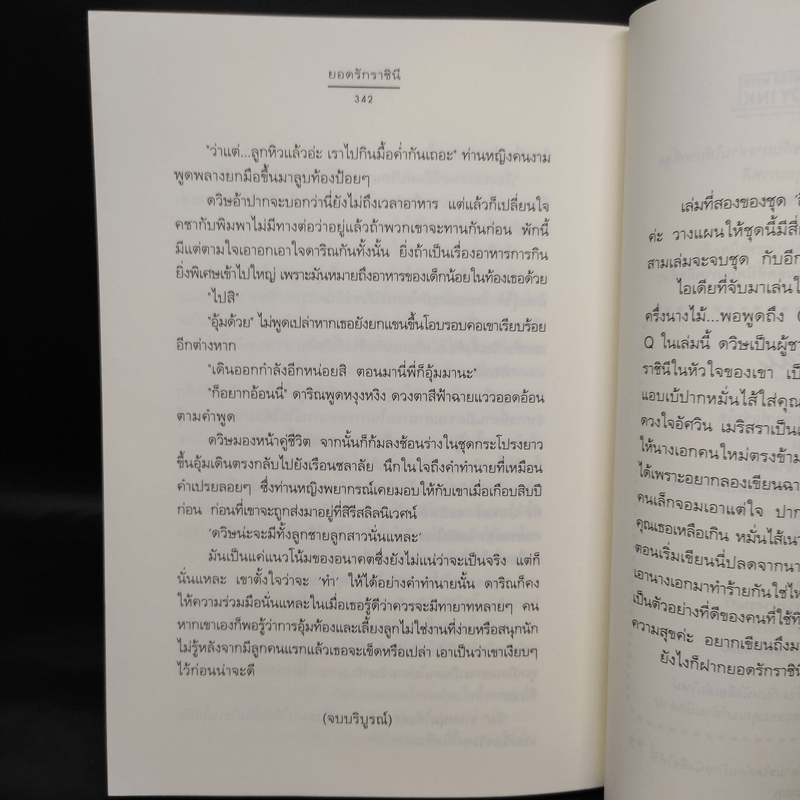 ยอดรักราชินี
342
"ว่าแต่...ลูกหิวแล้วอ่ะ เราไปกินมื้อค่ำกันเถอะ" ท่านหญิงคนงาม
พูดพลางยกมือขึ้นมาลูบท้องป้อยๆ
ดวิษอ้าปากจะบอกว่านี่ยังไม่ถึงเวลาอาหาร แต่แล้วก็เปลี่ยนใจ
คชากับพิมพาไม่มีทางต่อว่าอยู่แล้วถ้าพวกเขาจะทานกันก่อน พักนี้
มีแต่ตามใจเอาอกเอาใจดาริณกันทั้งนั้น ยิ่งถ้าเป็นเรื่องอาหารการกิน
ยิ่งพิเศษเข้าไปใหญ่ เพราะมันหมายถึงอาหารของเด็กน้อยในท้องเธอด้วย
"ไปสิ"
"อุ้มด้วย" ไม่พูดเปล่าหากเธอยังยกแขนขึ้นโอบรอบคอเขาเรียบร้อย
อีกต่างหาก
"เดินออกกำลังอีกหน่อยสิ ตอนมานี่พี่ก็อุ้มมานะ"
"ก็อยากอ้อนนี่" ดาริณพูดหงุงหงิง ดวงตาสีฟ้าฉายแววออดอ้อน
ตามคำพูด
ดวิษมองหน้าคู่ชีวิต จากนั้นก็ก้มลงช้อนร่างในชุดกระโปรงยาว
ขึ้นอุ้มเดินตรงกลับไปยังเรือนชลาลัย นึกในใจถึงคำทำนายที่เหมือน
คำเปรยลอยๆ ซึ่งท่านหญิงพยากรณ์เคยมอบให้กับเขาเมื่อเกือบสิบปี
ก่อน ก่อนที่เขาจะถูกส่งมาอยู่ที่สิรีสลิลนิเวศน์
'ดวิษน่ะจะมีทั้งลูกชายลูกสาวนั่นแหละ'
มันเป็นแค่แนวโน้มของอนาคตซึ่งยังไม่แน่ว่าจะเป็นจริง แต่ก็
นั่นแหละ เขาตั้งใจว่าจะ 'ทำ' ให้ได้อย่างคำทำนายนั้น ดาริณก็คง
ให้ความร่วมมือนั่นแหละในเมื่อเธอรู้ดีว่าควรจะมีทายาทหลายๆ คน
หากเขาเองก็พอรู้ว่าการอุ้มท้องและเลี้ยงลูกไม่ใช่งานที่ง่ายหรือสนุกนัก
ไม่รู้หลังจากมีลูกคนแรกแล้วเธอจะเข็ดหรือเปล่า เอาเป็นว่าเขาเงียบๆ
ไว้ก่อนน่าจะดี
(จบบริบูรณ์)
เล่มที่สองของชุด
ค่ะ วางแผนให้ชุดนี้มีสี่
สามเล่มจะจบชุด กับอีก
ไอเดียที่จับมาเล่นใ
ครึ่งนางไม้...พอพูดถึง
Q ในเล่มนี้ ดวิษเป็นผู้ชา
ราชินีในหัวใจของเขา เป็
แอบเบ้ปากหมั่นไส้ใส่คุณ
ดวงใจอัศวิน เมริสราเป็น
ให้นางเอกคนใหม่ตรงข้าม
ได้เพราะอยากลองเขียนฉา
คนเล็กจอมเอาแต่ใจ ปาก
คุณเธอเหลือเกิน หมั่นไส้เนา
ตอนเริ่มเขียนนี่ปลดจากนา
เอานางเอกมาทำร้ายกันใช่ไห
เป็นตัวอย่างที่ดีของคนที่ใช้ที
ความสุขค่ะ อยากเขียนถึงม
ยังไงก็ฝากยอดรักราชินี